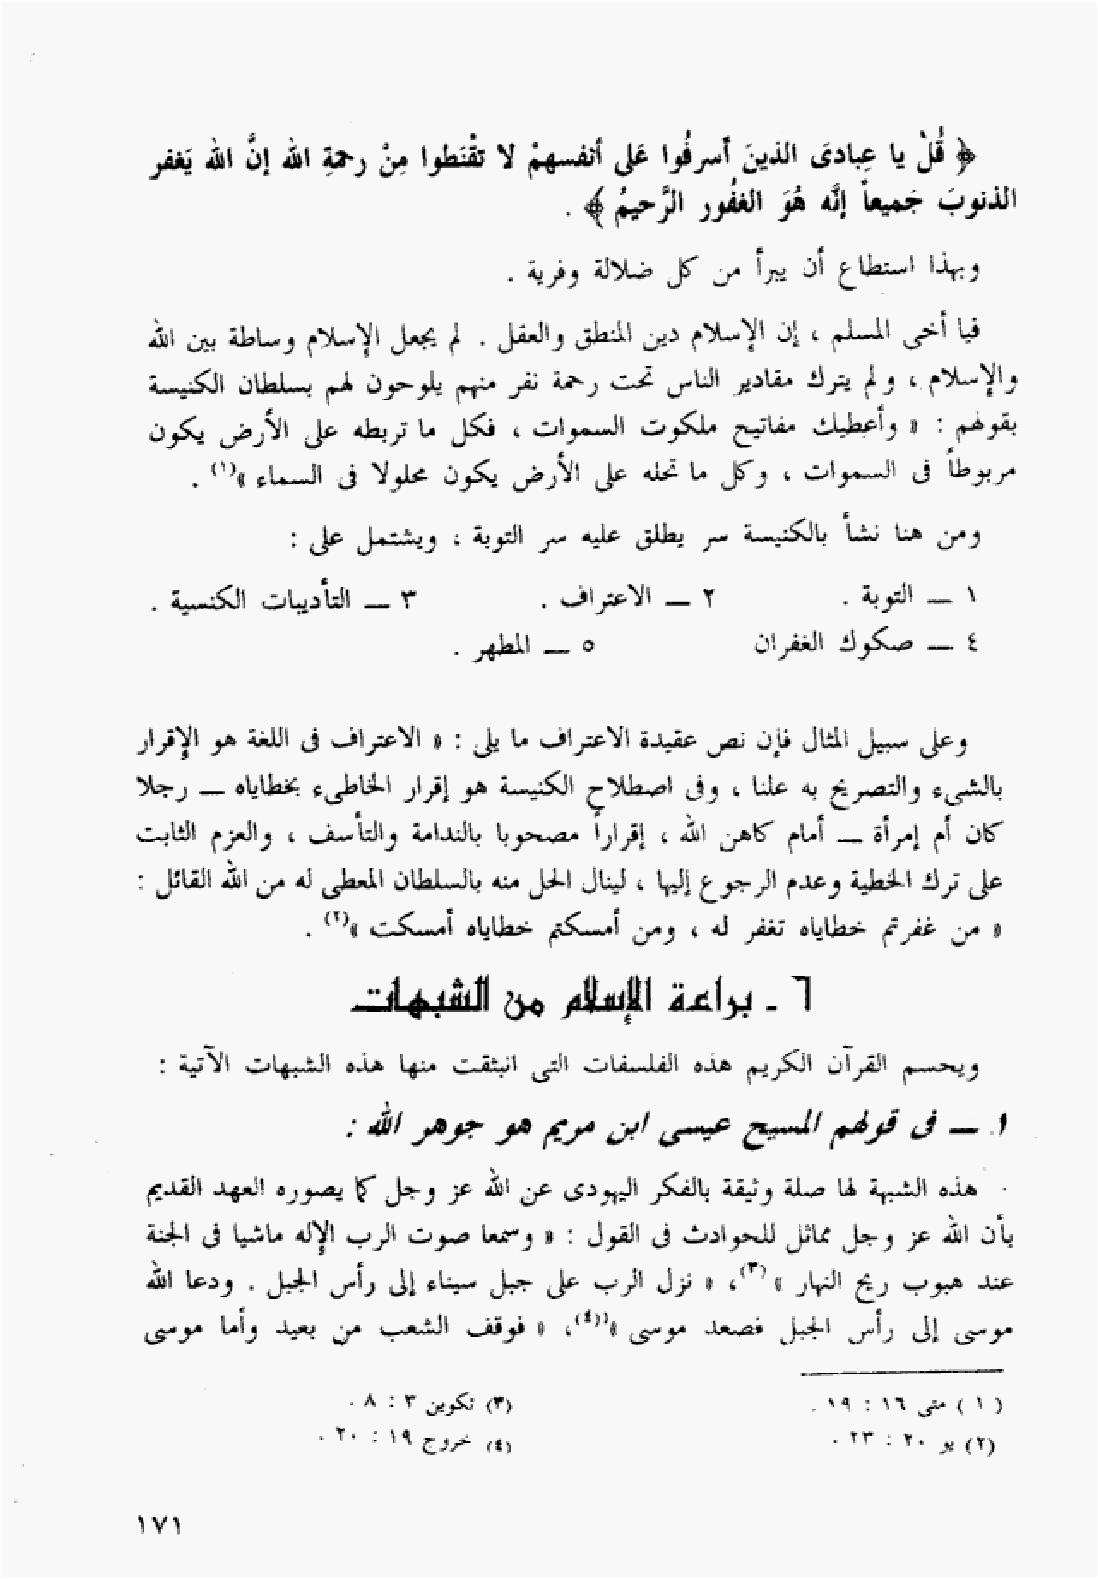 ﴿ قُلْ يا عِبادىَ الذينَ أسرفُوا عَلى أنفسهمْ لا تقْنَطوا مِنْ رحمةِ الله إنَّ الله يَغفر
الذنوبَ جَميعاً إنَّه هُوَ الغفُور الرَّحيمُ ﴾ .
وبهذا استطاع أن يبرأ من كل ضلالة وفرية .
فيا أخى المسلم ، إن الإسلام دين المنطق والعقل . لم يجعل الإسلام وساطة بين الله
والإسلام ، ولم يترك مقادير الناس تحت رحمة نفر منهم يلوحون لهم بسلطان الكنيسة
بقولهم : « وأعطيك مفاتيح ملكوت السموات ، فكل ما تربطه على الأرض يكون
مربوطاً فى السموات ، وكل ما تحله على الأرض يكون محلولا فى السماء »(١) .
ومن هنا نشأ بالكنيسة سر يطلق عليه سر التوبة ، ويشتمل على :
١ — التوبة . ٢ — الاعتراف . ٣ — التأديبات الكنسية .
٤ — صكوك الغفران ٥ — المطهر .
وعلى سبيل المثال فإن نص عقيدة الاعتراف ما يلى : « الاعتراف فى اللغة هو الإقرار
بالشىء والتصريح به علنا ، وفى اصطلاح الكنيسة هو إقرار الخاطىء بخطاياه — رجلا
كان أم إمرأة — أمام كاهن الله ، إقراراً مصحوبا بالندامة والتأسف ، والعزم الثابت
على ترك الخطية وعدم الرجوع إليها ، لينال الحل منه بالسلطان المعطى له من الله القائل :
« من غفرتم خطاياه تغفر له ، ومن أمسكتم خطاياه أمسكت »(٢) .
٦ - براءة الإسلام من الشبهات
ويحسم القرآن الكريم هذه الفلسفات التى انبثقت منها هذه الشبهات الآتية :
١ — فى قولهم المسيح عيسى ابن مريم هو جوهر الله :
هذه الشبهة لها صلة وثيقة بالفكر اليهودى عن الله عز وجل كما يصوره العهد القديم
بأن الله عز وجل مماثل للحوادث فى القول : « وسمعا صوت الرب الإله ماشيا فى الجنة
عند هبوب ريح النهار »(٣)، « نزل الرب على جبل سيناء إلى رأس الجبل . ودعا الله
موسى إلى رأس الجبل فصعد موسى »(٤)، « فوقف الشعب من بعيد وأما موسى
(١) متى ١٦ : ١٩ .
(٢) يو ٢٠ : ٢٣ .
(٣) تكوين ٣ : ٨ .
(٤) خروج ١٩ : ٢٠ .
١٧١